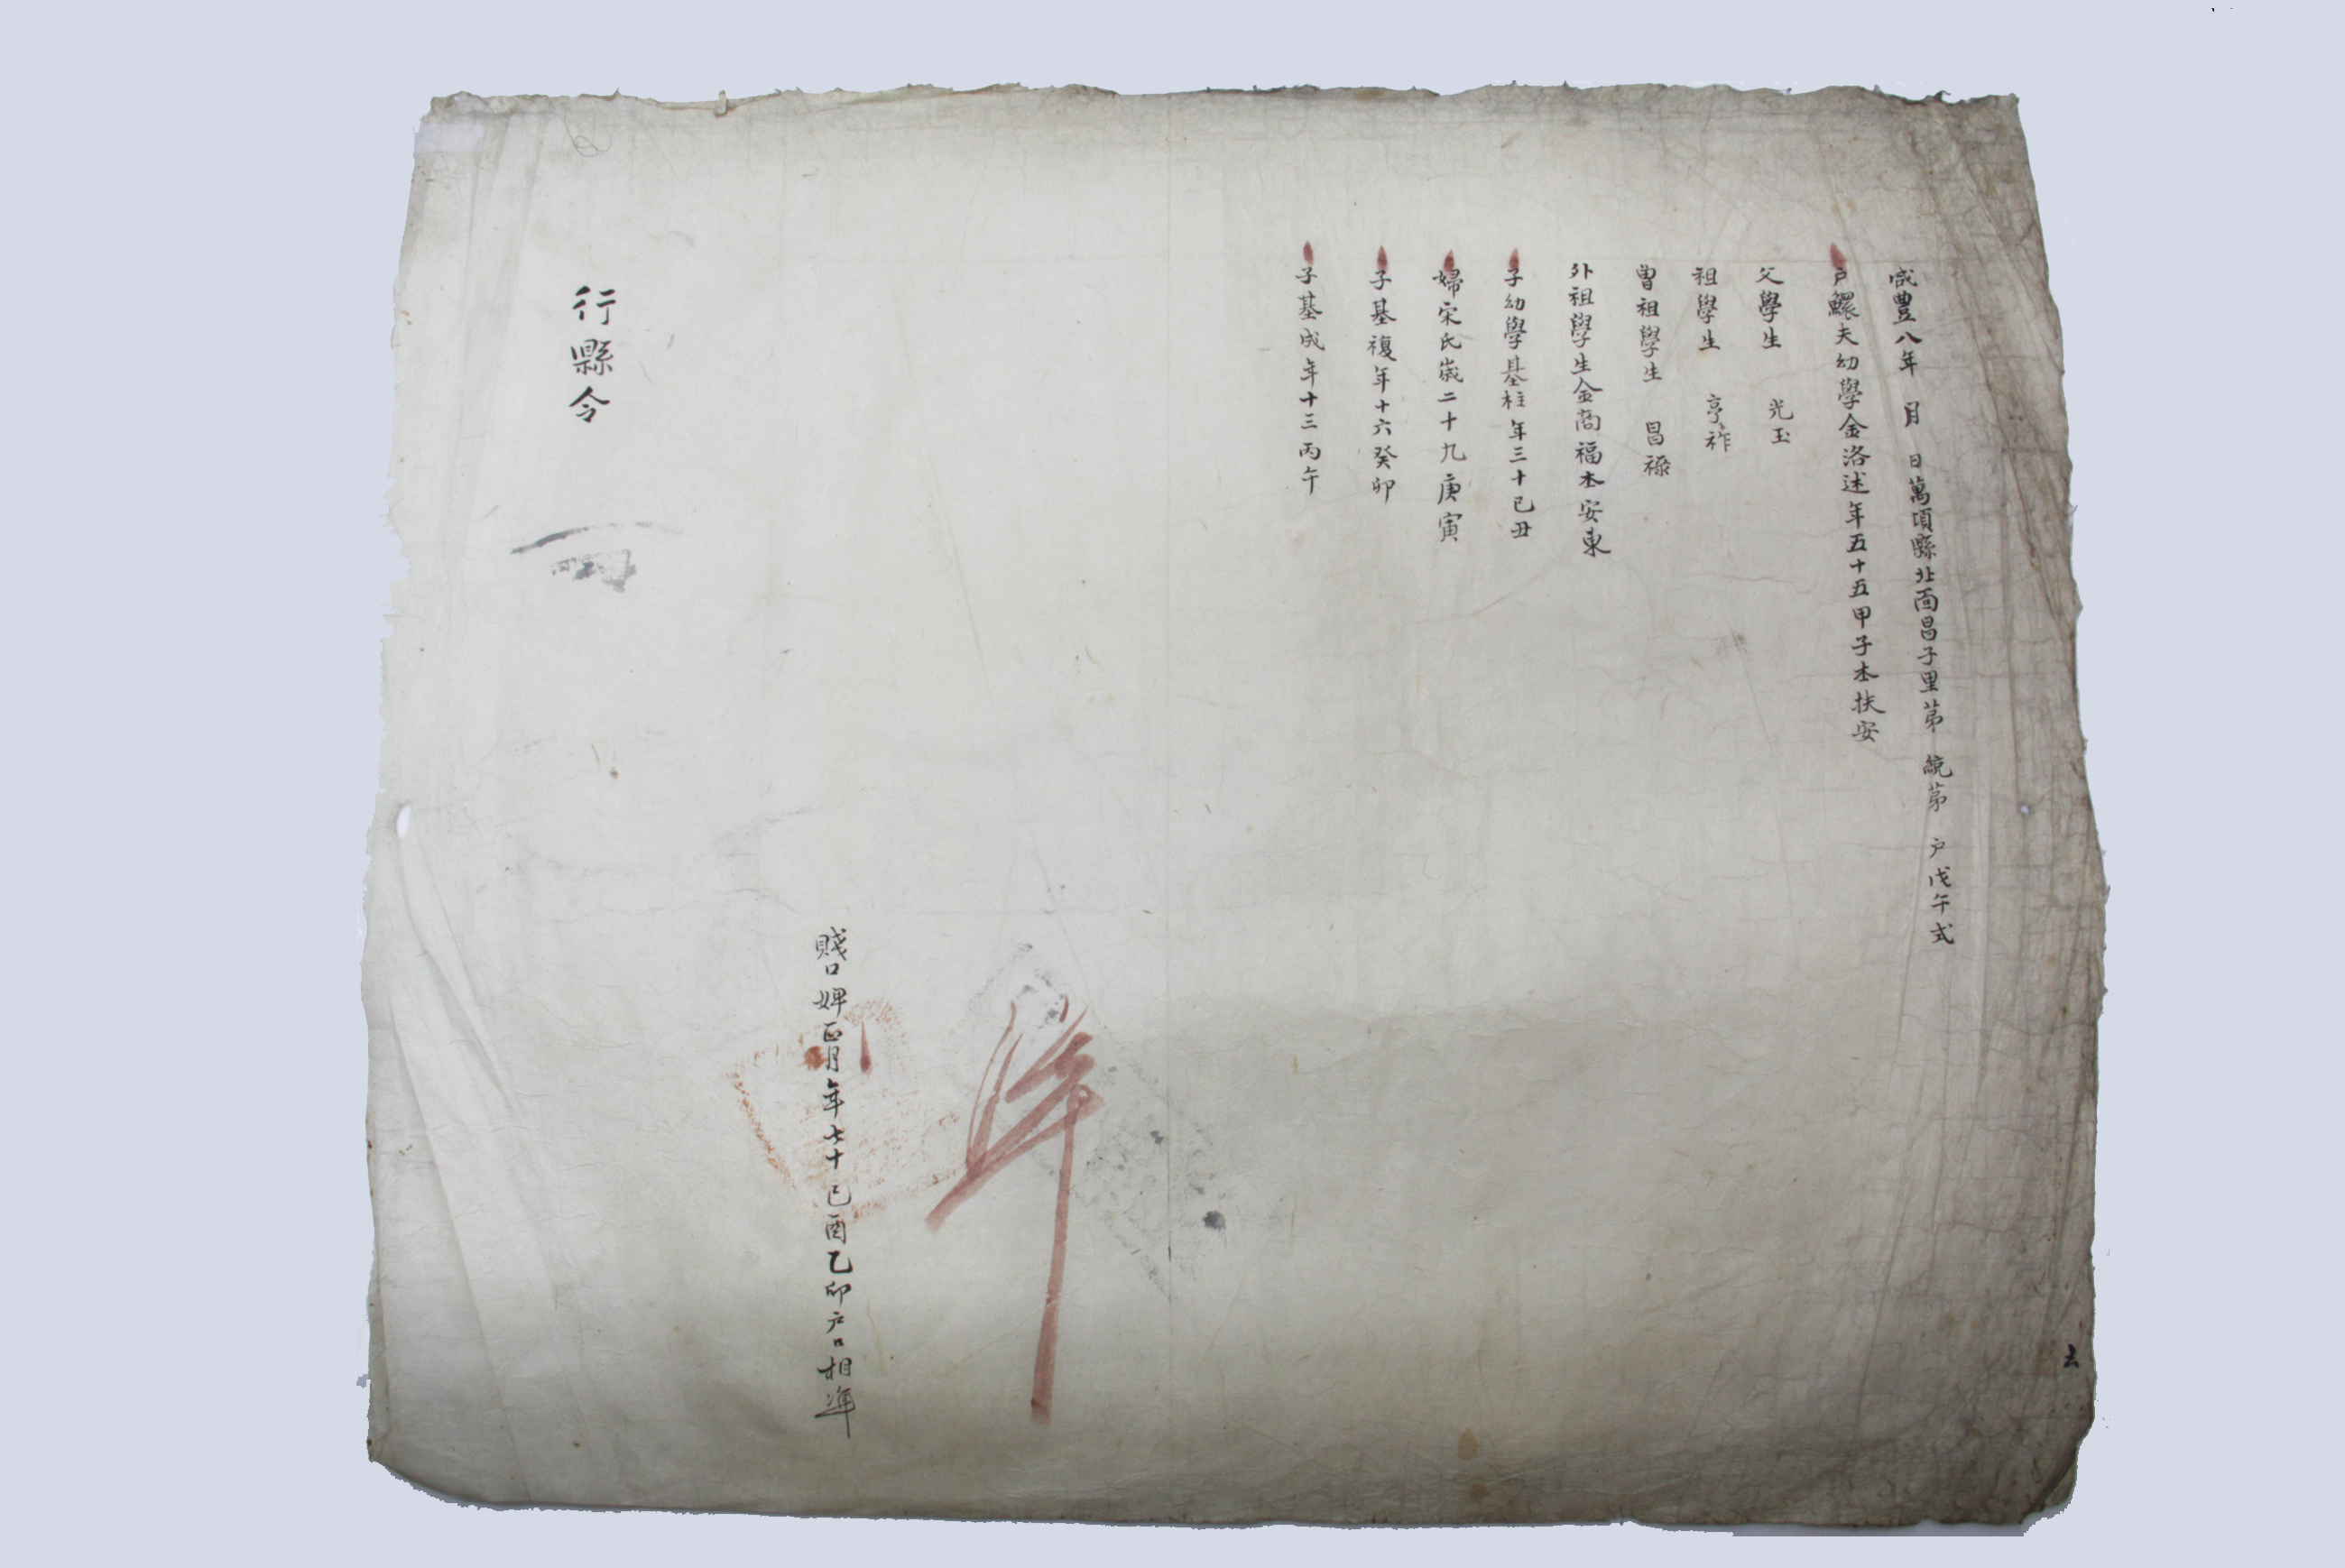 咸豊八年 月 日萬頃縣北面昌子里苐 統苐 户戊午式
户鰥夫幼學金洛述年五十五甲子本扶安
父學生 光玉
祖學生 亨祚
曽祖學生 昌祿
外祖學生金商福本安東
子幼學基柱年三十己丑
婦宋氏歳二十九庚寅
子基複年十六癸卯
子基成年十三丙午
準
賤口婢正月年七十己酉乙卯户口相準
行縣令